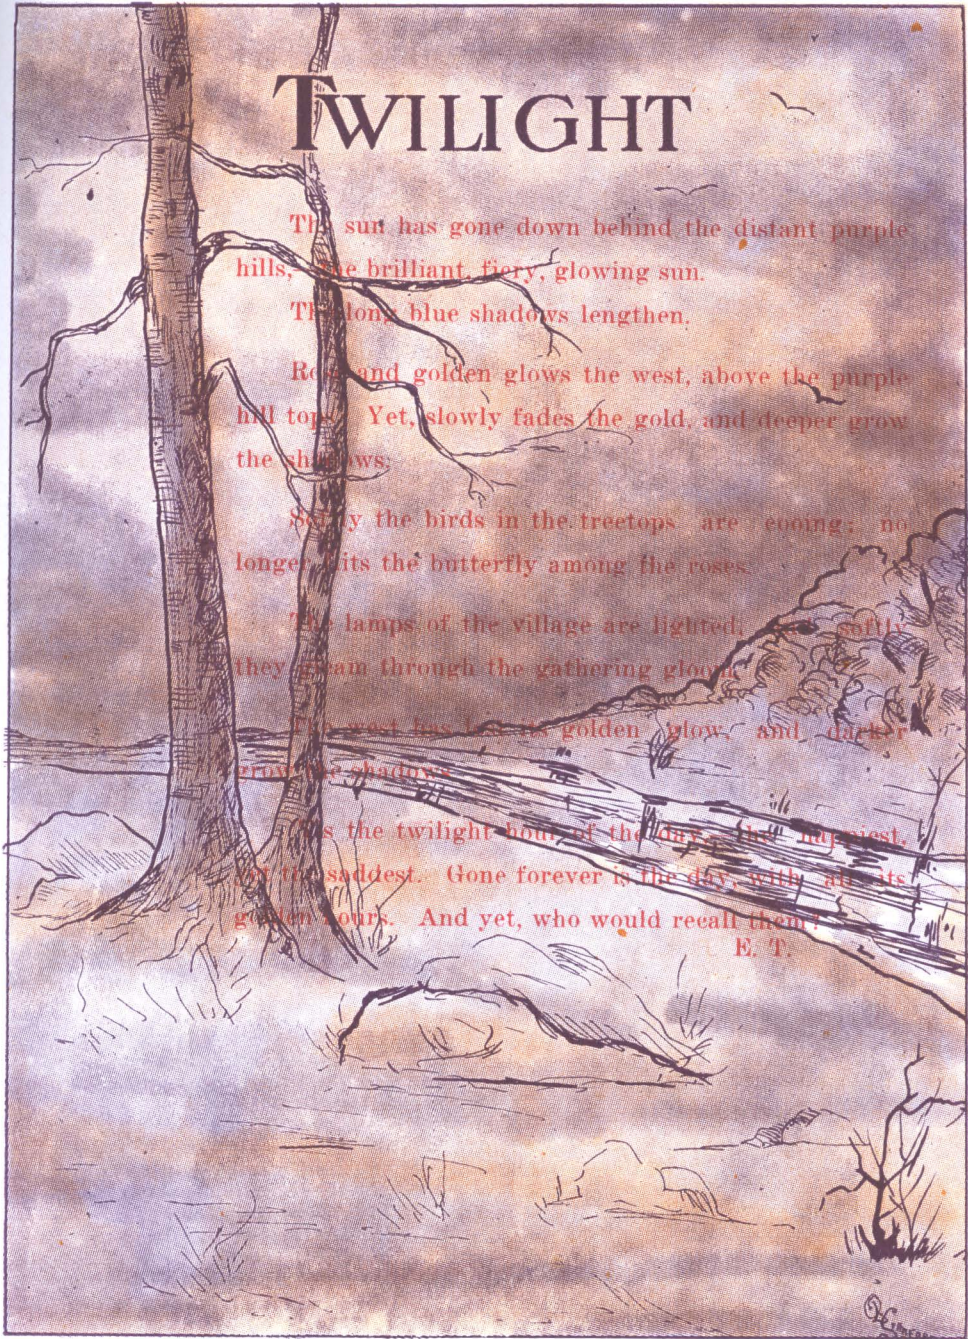 TWILIGHT
The sun has gone down behind the distant purple
hills, the brilliant, fiery, glowing sun.
The long blue shadows lengthen.
Rose and golden glows the west, above the purple
hill tops. Yet, slowly fades the gold, and deeper grow
the shadows.
Softly the birds in the treetops are cooing; no
longer flits the butterfly among the roses.
The lamps of the village are lighted, and softly
they gleam through the gathering gloom.
The west has lost its golden glow, and darker
grow the shadows.
'Tis the twilight hour of the day, the happiest,
yet the saddest. Gone forever is the day, with all its
golden hours. And yet, who would recall them?
E. T.